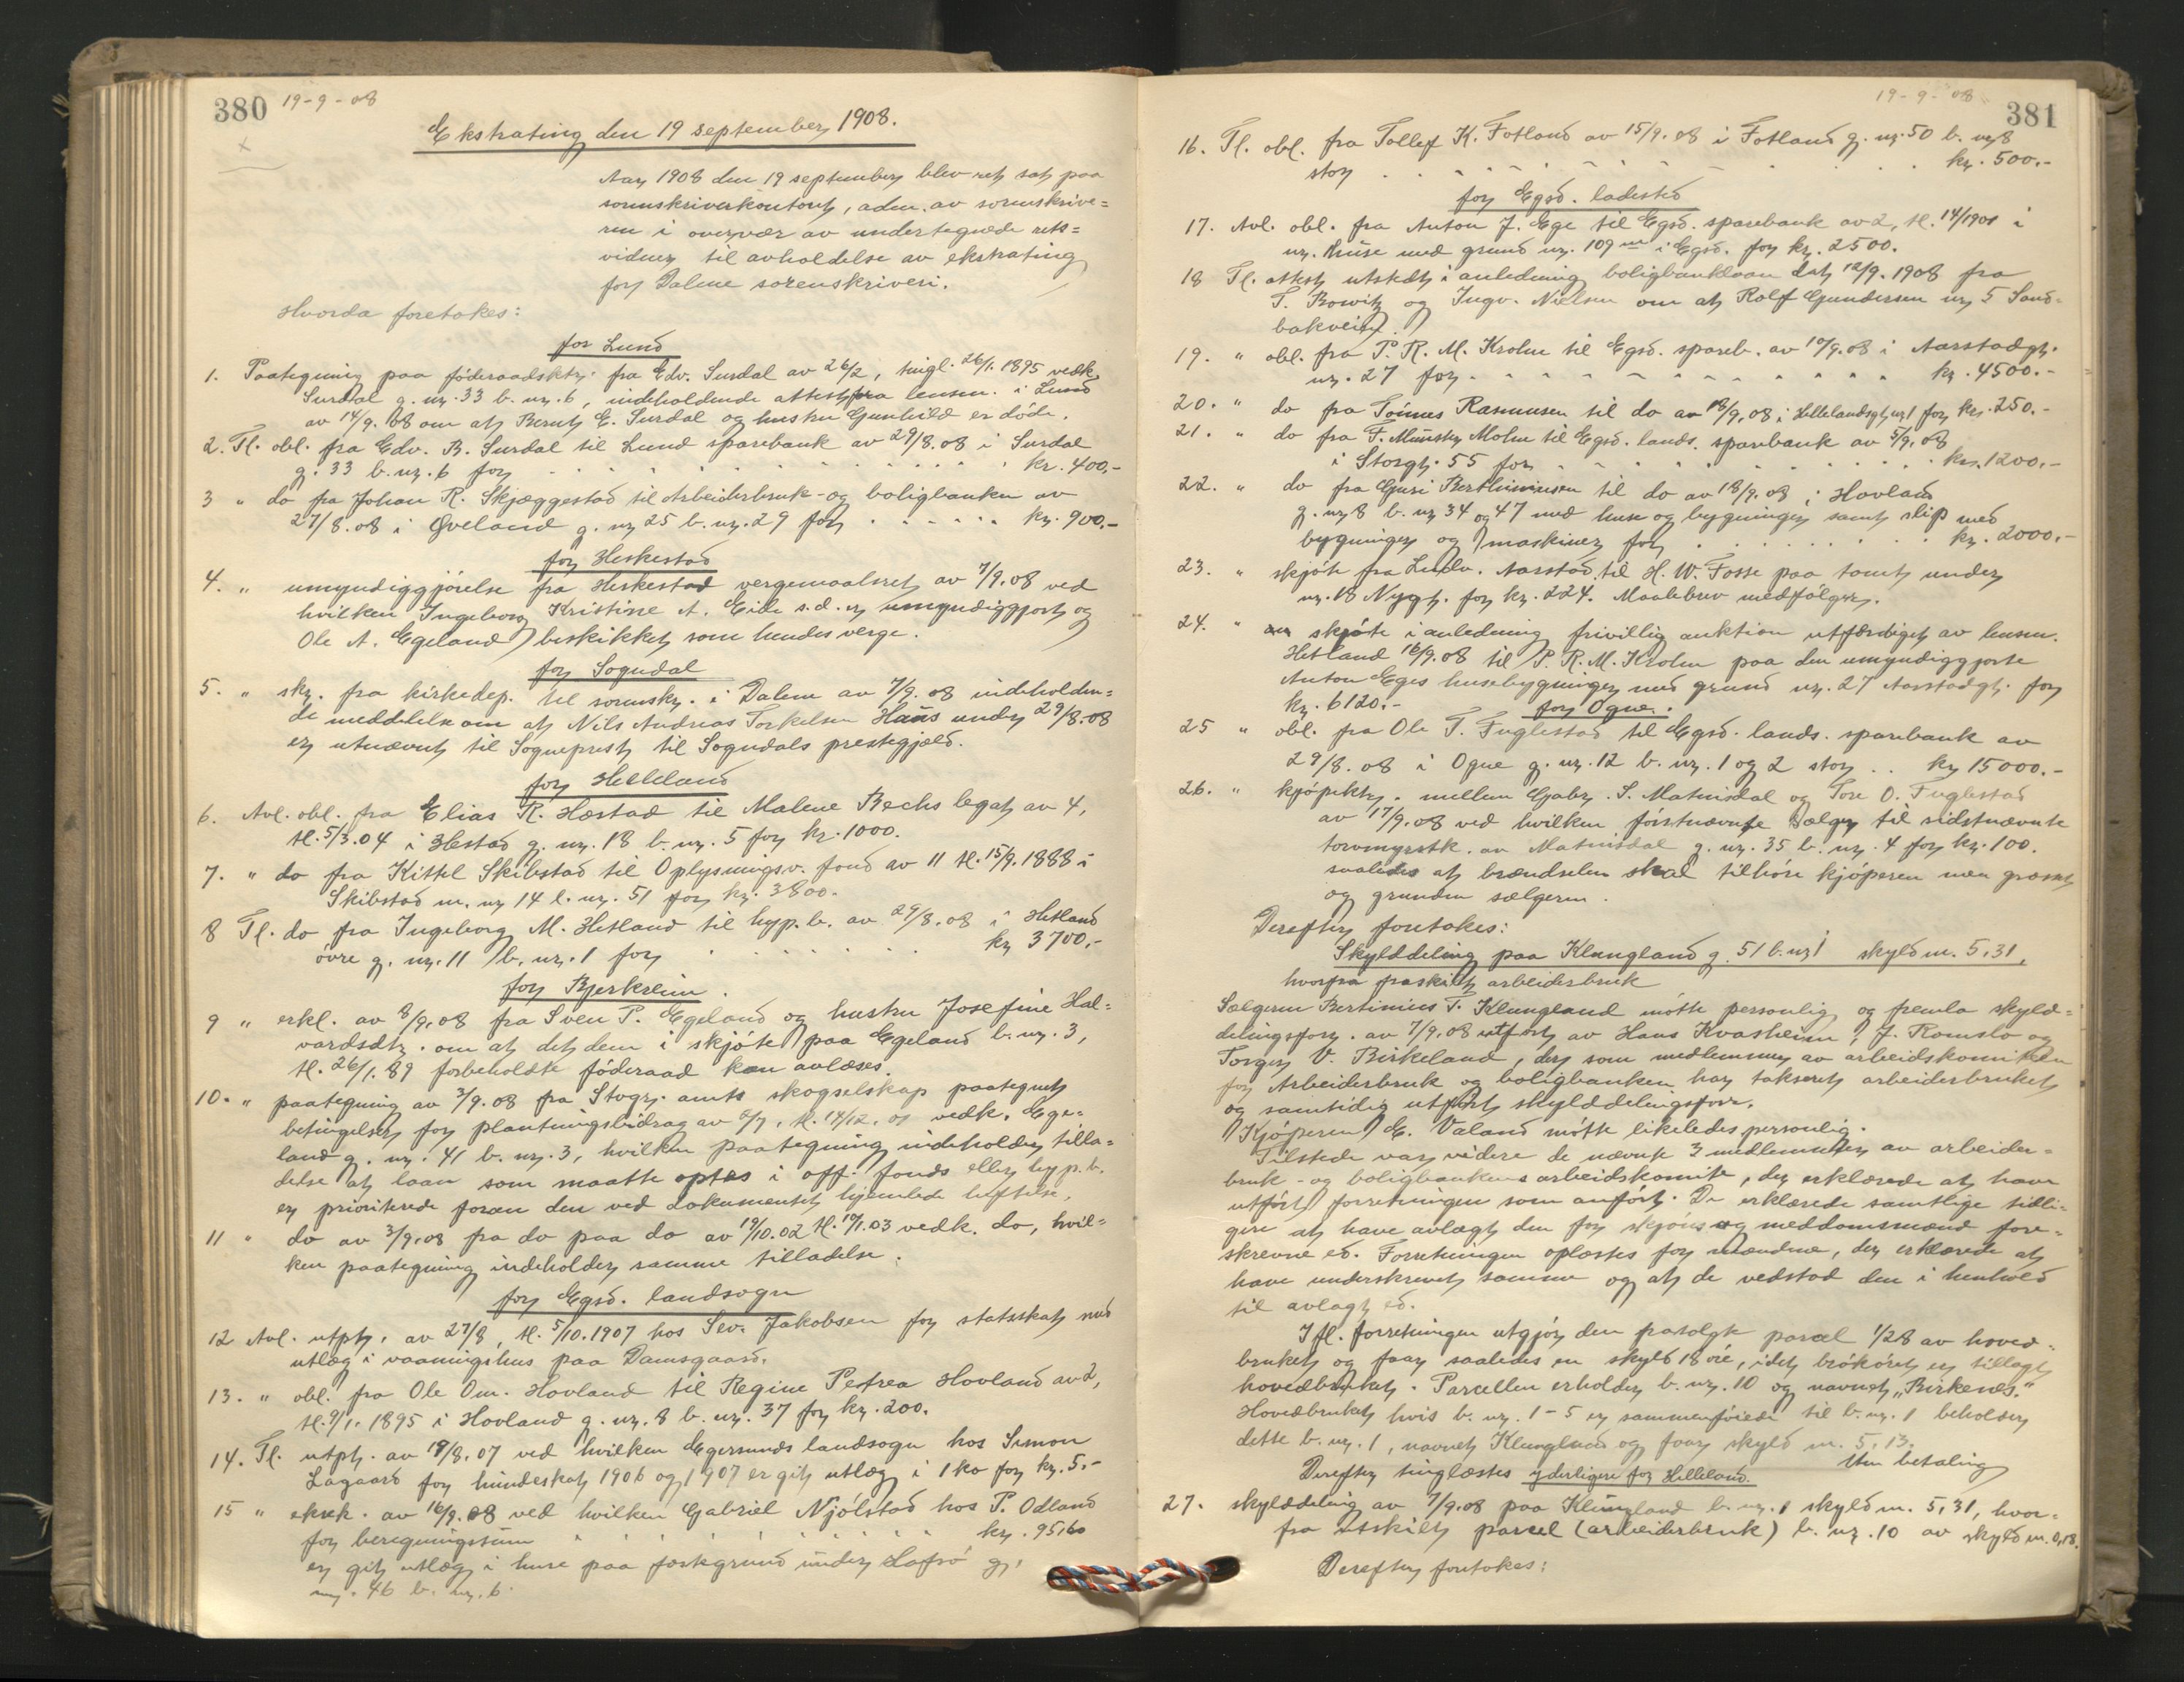 380 19-9-08
Ekstrating den 19 september 1908.
Aar 1908 den 19 september blev ret sat paa
sorenskriverkontoret, adm. av sorenskrive=
ren i overvær av undertegnede rets=
vidner til avholdelse av ekstrating
for Dalene sorenskriveri.
Hvorda foretokes:
for Lund
1. Paategning paa föderaadsktr. fra Edv. Surdal av 26/2, tingl. 26/1. 1895 vedk.
Surdal g. nr. 33 b. nr. 6, indeholdende attest fra lensm. i Lund
av 14/9. 08 om at Bernt E. Surdal og hustru Gunhild er döde.
2. Tl. obl. fra Edv. B. Surdal til Lund sparebank av 29/8. 08 i Surdal
g. 33 b. nr. 6 for kr. 400,-
3 " do fra Johan R. Skjæggestad til Arbeiderbruk- og boligbanken av
27/8. 08 i Qveland g. nr 25 b. nr. 29 for kr. 900,-
for Heskestad
4. " umyndiggjörelse fra Heskestad vergemaalsret av 7/9. 08 ved
hvilken Ingeborg Kristine A. Eide s. d. er umyndiggjort og
Ole A. Egeland beskikket som hendes verge.
for Sogndal
5. " skr. fra kirkedep. til sorenskr. i Dalene av 7/9. 08 indeholden=
de meddelelse om at Nils Andreas Torkelsen Haus under 29/8. 08
er utnævnt til Sogneprest til Sogndals prestegjæld.
for Helleland
6. Avl. obl. fra Elias R. Hæstad til Malene Bechs legat av 4,
tl. 5/3. 04 i Hestad g. nr. 18 b. nr. 5 for kr. 1000.
7. " do fra Kittel Skibstad til Oplysningsv. fond av 11 tl. 15/9. 1888 i
Skibstad m. nr 14 l. nr. 51 for kr. 3800.
8 Tl. do fra Ingeborg M. Hetland til hyp. b. av 29/8. 08 i Hetland
övre g. nr. 11 b. nr. 1 for kr 3700,-
for Bjerkreim.
9 " erkl. av 8/9. 08 fra Sven P. Egeland og hustru Josefine Hal=
vardsdtr. om at det dem i skjöte paa Egeland b. nr. 3,
tl. 26/1. 89 forbeholdte föderaad kan avlæses.
10. " paategning av 3/9. 08 fra Stvgr. amts skogselskap paategnet
betingelser for plantningsbidrag av 2/7, tl. 14/12. 01 vedk. Ege=
land g. nr. 41 b. nr. 3, hvilken paategning indeholder tilla=
delse at laan som maatte optas i off. fonds eller hyp. b.
er prioriterede foran den ved dokumentet hjemlede heftelse,
11 " do av 3/9. 08 fra do paa do av 19/10. 02 tl. 19/1. 03 vedk. do, hvil=
ken paategning indeholder samme tilladelse.
for Egsd. landsogn
12 Avl. utpt. av 27/8, tl. 5/10. 1907 hos Sev. Jakobsen for statsskat med
utlæg i vaaningshus paa Damsgaard.
13. " obl. fra Ole Om. Hovland til Regine Petrea Hovland av 2,
tl. 9/1. 1895 i Hovland g. nr. 8 b. nr. 37 for kr. 200.
14. Tl. utpt. av 19/8. 07 ved hvilken Egersunds landsogn hos Simon
Lagaard for hundeskat 1906 og 1907 er git utlæg i 1 ko for kr. 5.-
15 " eksek. av 16/9. 08 ved hvilken Gabriel Njölstad hos P. Odland
for beregningssum kr. 95,60
er git utlæg i huse paa festegrund under g.
nr. 46 b. nr. 6.
19-9-08 381
16. Tl. obl. fra Tollef K. Fotland av 15/9. 08 i Fotland g. nr. 50 b. nr 8
stor kr. 500.-
for Egsd. ladested
17. Avl. obl. fra Anton J. Ege til Egsd. sparebank av 2, tl. 14/1901 i
nr. huse med grund nr. 109 i Egsd. for kr. 2500.
18 Tl. attest utstedt i anledning boligbanklaan dat 12/9. 1908 fra
T. Bowitz og Ingv. Nielsen om at Rolf Gundersen nr 5 Sand=
bakveien.
19. " obl. fra P. R. M. Krohn til Egsd. spareb. av 10/9. 08 i Aarstadgt.
nr. 27 for kr. 4500.-
20. " do fra Tönnes Rasmusen til do av 18/9. 08 i Hellelandsgt. nr 1 for kr. 250.-
21. " do fra F. Münster Mohn til Egsd. lands. sparebank av 5/9. 08
i Storgt. 55 for kr. 1200.-
22. " do fra Guri Berthiniusen til do av 18/9. 08 i Hovland
g. nr 8 b. nr 34 og 47 med huse og bygninger samt slip med
bygninger og maskiner for kr. 2000.-
23. " skjöte fra Ludv. Aarstad til H. W. Fosse paa tomt under
nr. 18 Nygt. for kr. 224. Maalebrev medfölger.
24. " skjöte i anledning frivillig auktion utfærdiget av lensm.
Hetland 16/9. 08 til P. R. M. Krohn paa den umyndiggjorte
Anton Eges husebygninger med grund nr. 27 Aarstadgt. for
kr. 6120.-
for Ogne.
25 " obl. fra Ole T. Fuglestad til Egsd. lands. sparebank av
29/8. 08 i Ogne g. nr. 12 b. nr. 1 og 2 stor .. kr 15000.-
26. " kjøpektr. mellem Gabr. S. Matnisdal og Tore O. Fuglestad
av 17/9. 08 ved hvilken förstnævnte sælger til sidstnævnte
torvmyrstk. av Matnisdal g. nr. 35 b. nr. 4 for kr. 100.
saaledes at brændselen skal tilhöre kjöperen men græsset
og grunden sælgeren.
Derefter foretokes:
Skylddeling paa Klungland g. 51 b. nr 1 skyld m. 5,31,
hvorfra fraskilt arbeiderbruk
Sælgeren Bertinius T. Klungland mötte personlig og fremla skyld=
delingsforr. av 7/9. 08 utfört av Hans Kvasheim, J. Romslo og
Torger V. Birkeland, der som medlemmer av arbeidskomiteen
for Arbeiderbruk og boligbanken har takseret arbeiderbruket
og samtidig utfört skylddelingsforr.
Kjöperen E. Valand mötte likeledes personlig.
Tilstede var videre de nævnte 3 medlemmer av arbeider=
bruk- og boligbankens arbeidskomite, der erklærede at have
utfört forretningen som anfört. De erklærede samtlige tidli=
gere at have avlagt den for skjöns og meddomsmænd fore=
skrevne ed. Forretningen oplæstes for mændene, der erklærede at
have underskrevet samme og at de vedstod den i henhold
til avlagt ed.
Ifl. forretningen utgjör den frasolgte parcel 1/28 av hoved=
bruket og faar saaledes en skyld 18 öre, idet brököret er tillagt
hovedbruket. Parcellen erholder b. nr. 10 og navnet „Birkenes."
Hovedbruket hvis b. nr. 1-5 er sammenföiede til b. nr. 1 beholder
dette b. nr. 1, navnet Klungland og faar skyld m. 5,13.
Uten betaling
Derefter tinglæstes yderligere for Helleland.
27. skylddeling av 7/9. 08 paa Klungland b. nr. 1 skyld m. 5,31, hvor=
fra utskilt parcel (arbeiderbruk) b. nr. 10 av skyld m. 0,18.
Derefter foretokes: